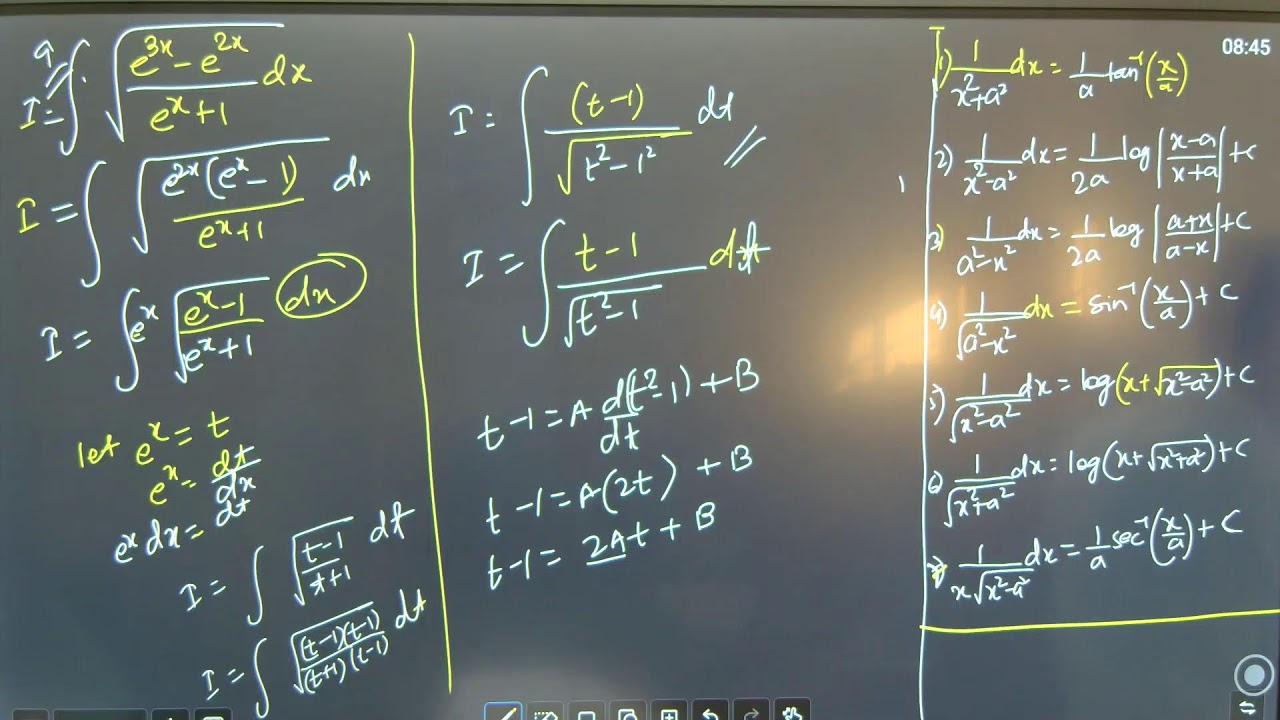 9
I = ∫ √((e^3x − e^2x)/(e^x + 1)) dx
I = ∫ √((e^2x (e^x − 1))/(e^x + 1)) dx
I = ∫ e^x √((e^x − 1)/(e^x + 1)) dx
let e^x = t
e^x = dt/dx
e^x dx = dt
I = ∫ √((t−1)/(t+1)) dt
I = ∫ √(((t−1)(t−1))/((t+1)(t−1))) dt
I = ∫ (t−1)/√(t² − 1²) dt
I = ∫ (t−1)/√(t² − 1) dt
t−1 = A d(t²−1)/dt + B
t−1 = A(2t) + B
t−1 = 2At + B
08:45
1) 1/(x²+a²) dx = 1/a tan⁻¹(x/a)
2) 1/(x²−a²) dx = 1/2a log|(x−a)/(x+a)| + c
3) 1/(a²−x²) dx = 1/2a log|(a+x)/(a−x)| + c
4) 1/√(a²−x²) dx = sin⁻¹(x/a) + c
5) 1/√(x²−a²) dx = log(x+√(x²−a²)) + c
6) 1/√(x²+a²) dx = log(x+√(x²+a²)) + c
7) 1/(x√(x²−a²)) dx = 1/a sec⁻¹(x/a) + c